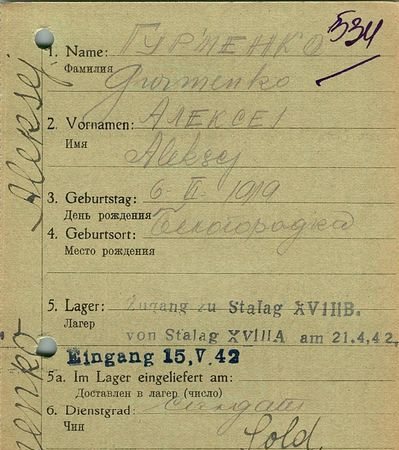 534
1. Name: ГУРМЕНКО
Фамилия Gurmenko
2. Vornamen: АЛЕКСЕI
Имя Aleksej
3. Geburtstag: 6-II-1919
День рождения
4. Geburtsort: Белогородка
Место рождения
5. Lager: Zugang zu Stalag XVIIIB.
Лагер von Stalag XVIIIA am 21.4.42.
Eingang 15.V.42
5a. Im Lager eingeliefert am:
Доставлен в лагер (число)
6. Dienstgrad:
Чин Sold.
Aleksej